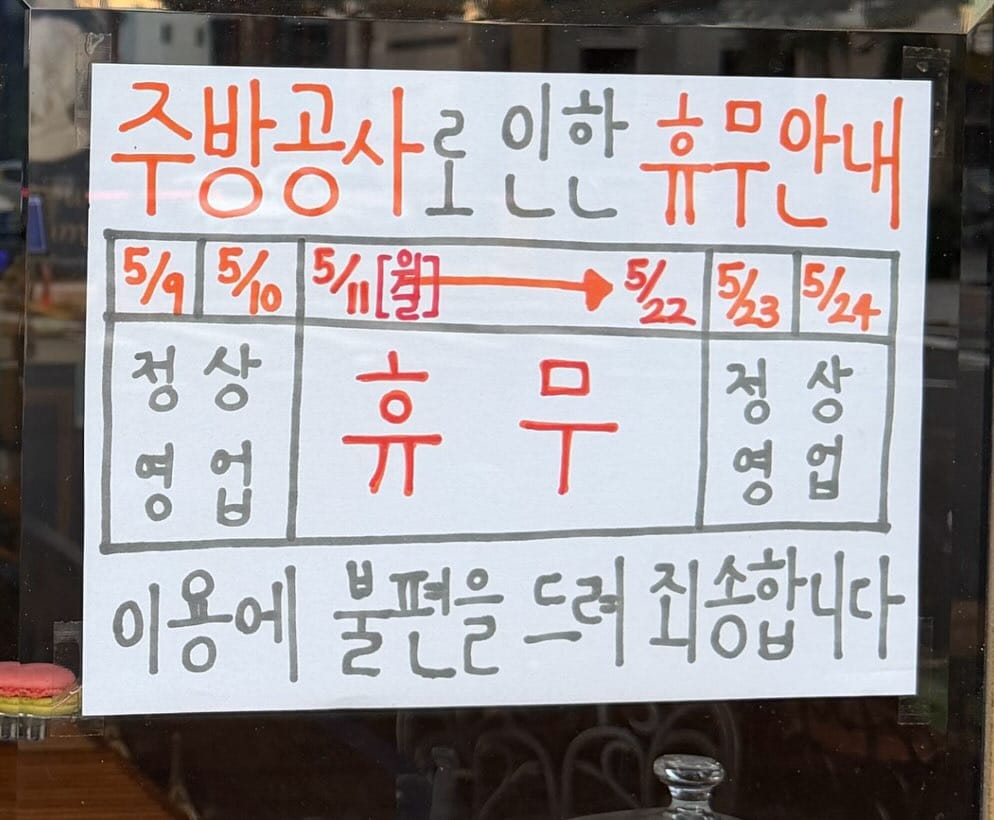 주방공사로 인한 휴무안내
5/9 5/10 5/11[월] → 5/22 5/23 5/24
정상 휴무 정상
영업 영업
이용에 불편을 드려 죄송합니다